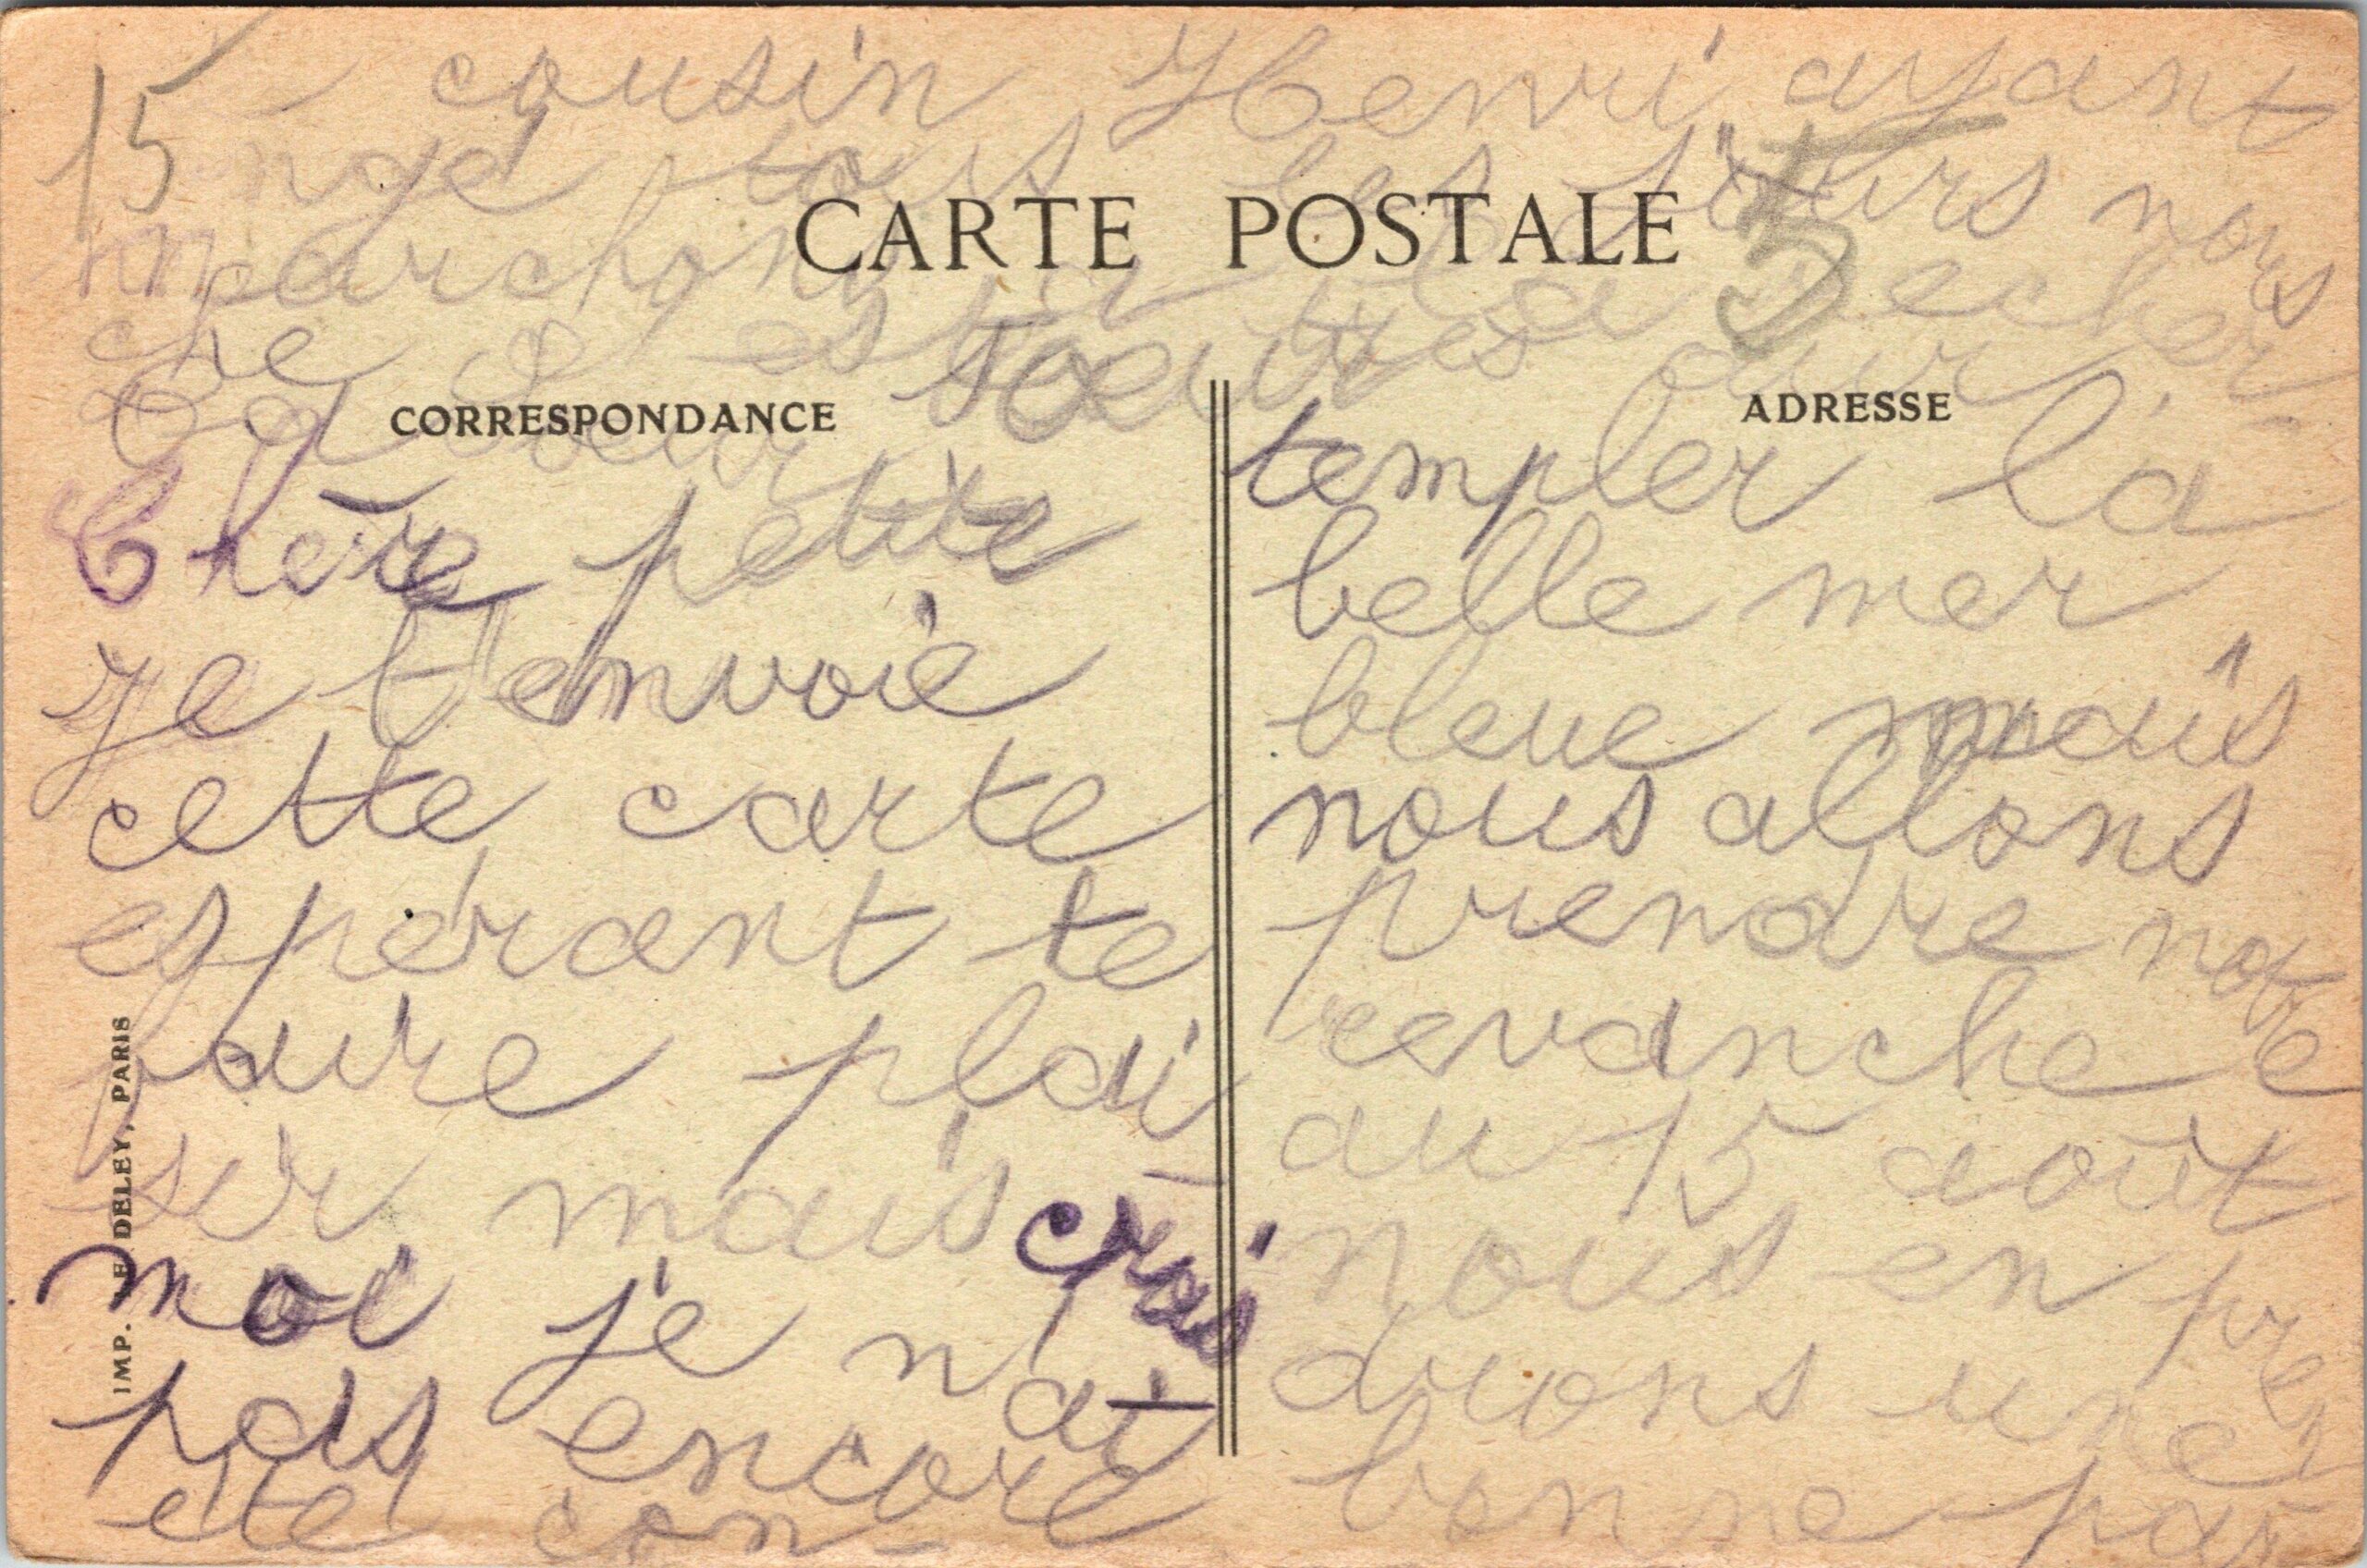 15
cousin Henri ayant
tous les jours nous
marchons à la
che
CARTE POSTALE
15
CORRESPONDANCE
ADRESSE
Chère petite
soeur
je t'envoie
cette carte
espérant te
faire plai
sir mais crois
moi je n'ai
pas encore
été con-
templer la
belle mer
bleue mais
nous allons
prendre notre
revanche
au 15 août
nous en pre
drons une
bonne par
IMP. E. DELEY, PARIS